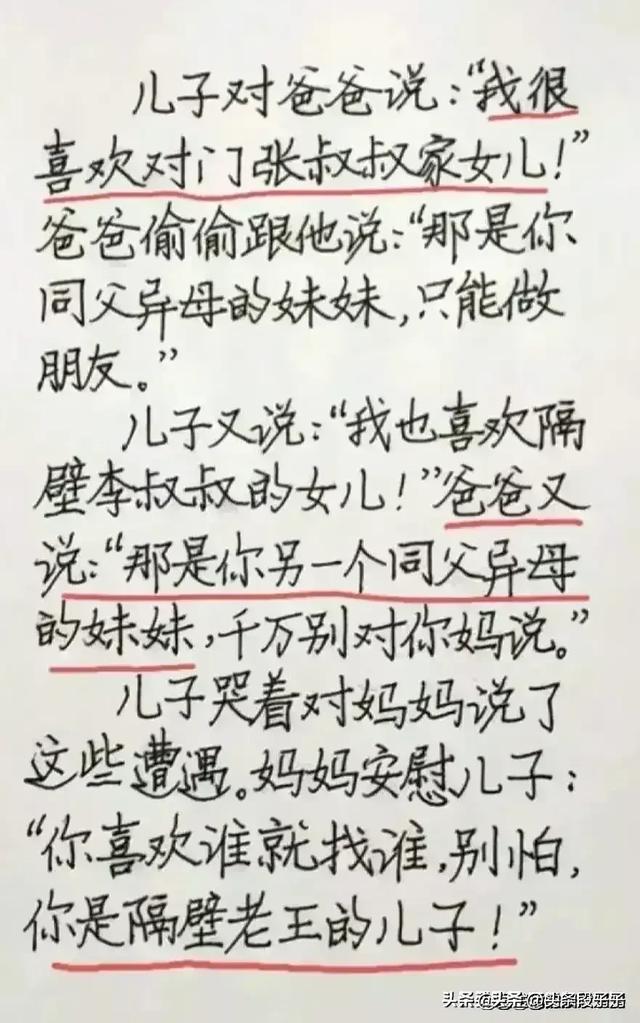 儿子对爸爸说:“我很
喜欢对门张叔叔家女儿!”
爸爸偷偷跟他说:“那是你
同父异母的妹妹,只能做
朋友。”
儿子又说:“我也喜欢隔
壁李叔叔的女儿!”爸爸又
说:“那是你另一个同父异母
的妹妹,千万别对你妈说。”
儿子哭着对妈妈说了
这些遭遇。妈妈安慰儿子:
“你喜欢谁就找谁,别怕,
你是隔壁老王的儿子!”
头条